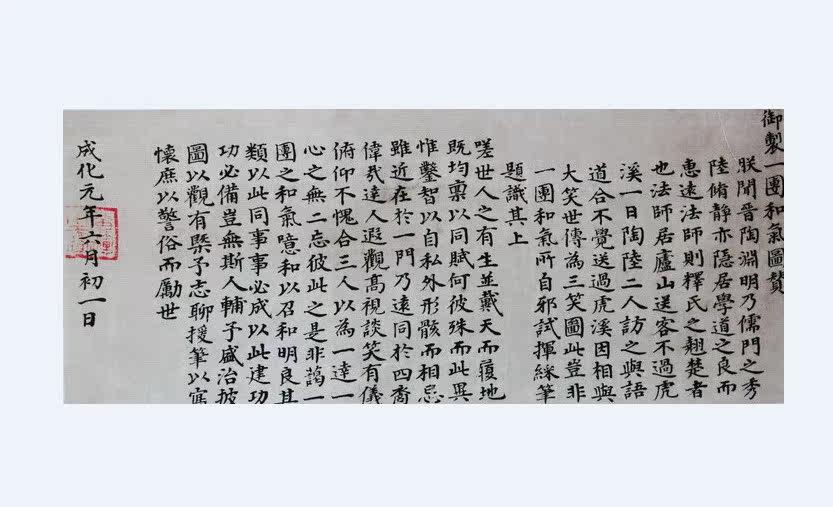 御製一團和氣圖贊
朕聞晉陶淵明乃儒門之秀
陸脩靜亦隠居學道之良而
惠遠法師則釋氏之翹楚者
也法師居廬山送客不過虎
溪一日陶陸二人訪之與語
道合不覺送過虎溪因相與
大笑世傳為三笑圖此豈非
一團和氣所自邪試揮綵筆
題識其上
嗟世人之有生並戴天而履地
既均禀以同賦何彼殊而此異
惟鑿智以自私外形骸而相忌
雖近在於一門乃遠同於四裔
偉哉達人遐觀高視談笑有儀
俯仰不愧合三人以為一達一
心之無二忘彼此之是非藹一
團之和氣噫和以召和明良其
類以此同事事必成以此建功
功必備豈無斯人輔予盛治披
圖以觀有槩予志聊援筆以寫
懷庶以警俗而勵世
成化元年六月初一日